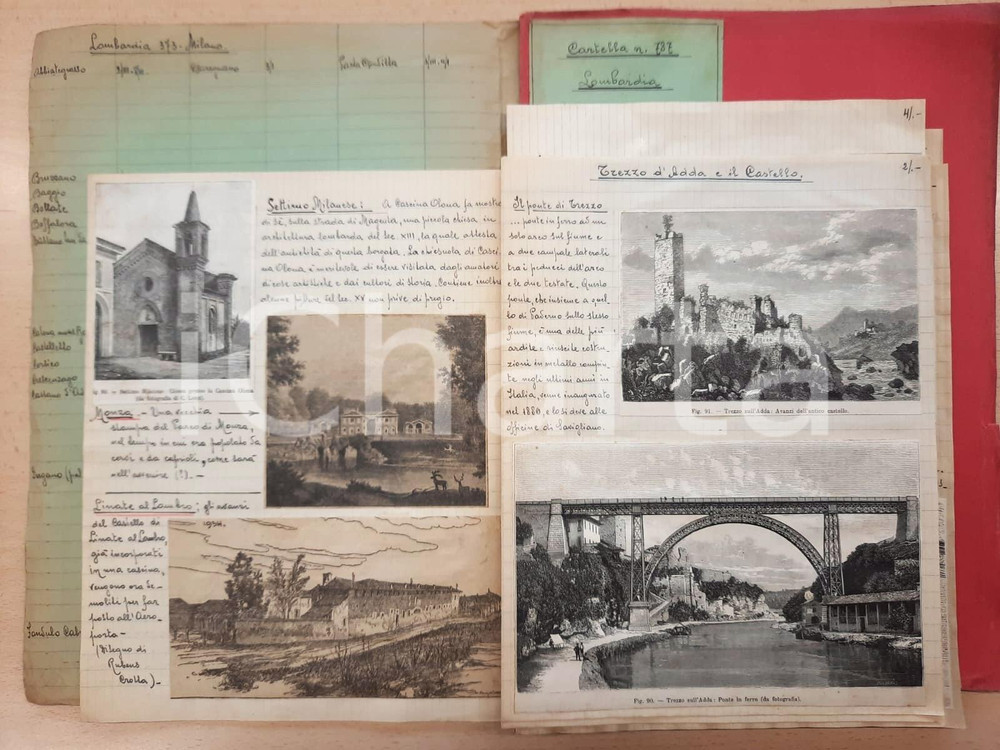 Lombardia 373. Milano
Abbiategrasso
Bruzzano
Baggio
Bollate
Boffalora
Settimo Milanese: A Cascina Olona fa mostra
di sé, sulla strada di Magenta, una piccola chiesa in
architettura lombarda del sec. XIII, la quale attesta
dell'antichità di questa borgata. La chiesuola di Casci-
na Olona è meritevole di essere visitata dagli amatori
di cose artistiche e dai cultori di storia. Contiene inoltre
alcune pitture del sec. XV non prive di pregio.
Monza - Una vecchia
stampa del Parco di Monza,
nel tempo in cui era popolato da
cervi e da caprioli, come sarà
nell'avvenire (?). -
Linate al Lambro: gli avanzi
del Castello di 1934.
Linate al Lambro,
già incorporati
in una cascina,
vengono ora de-
moliti per far
posto all'Aero-
porto -
(Disegno di
Rubens
Crolla) -
Cartella n. 787
Lombardia
4/.-
2/.-
Trezzo d'Adda e il Castello.
Il ponte di Trezzo
... ponte in ferro ad un
solo arco sul fiume e
a due campate laterali
tra i piedritti dell'arco
e le due testate. Questo
ponte, che insieme a quel-
lo di Paderno sullo stesso
fiume, è una delle più
ardite e riuscite costru-
zioni in metallo compiu-
te negli ultimi anni in
Italia, venne inaugurato
nel 1886, e lo si deve alle
officine di Savigliano.
Fig. 91. — Trezzo sull'Adda: Avanzi dell'antico castello.
Fig. 90. — Trezzo sull'Adda: Ponte in ferro (da fotografia).
Chatta